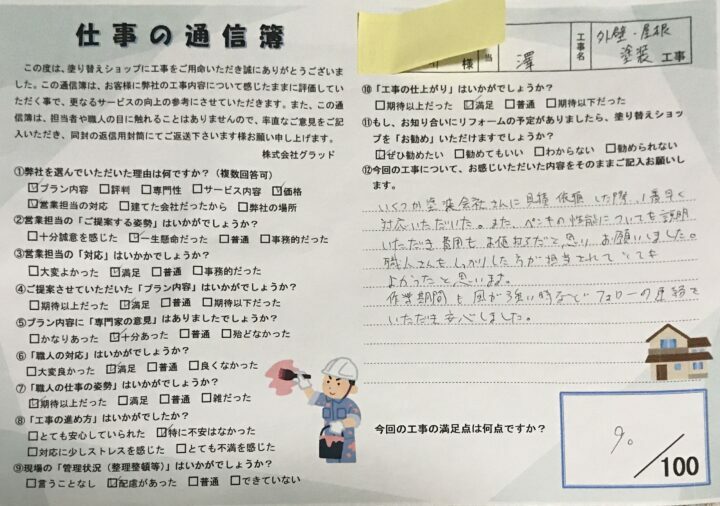 仕事の通信簿
この度は、塗り替えショップに工事をご用命いただき誠にありがとうございま
した。この通信簿は、お客様に弊社の工事内容について感じたままに評価してい
ただく事で、更なるサービスの向上の参考にさせていただきます。また、この通
信簿は、担当者や職人の目に触れることはありませんので、率直なご意見をご記
入いただき、同封の返信用封筒にてご返送下さいます様お願い申し上げます。
株式会社グラッド
①弊社を選んでいただいた理由は何ですか?(複数回答可)
☑プラン内容 □評判 □専門性 □サービス内容 ☑価格
☑営業担当の対応 □建てた会社だったから □弊社の場所
②営業担当の「ご提案する姿勢」はいかがでしょうか?
□十分誠意を感じた ☑一生懸命だった □普通 □事務的だった
③営業担当の「対応」はいかがでしょうか?
□大変よかった ☑満足 □普通 □事務的だった
④ご提案させていただいた「プラン内容」はいかがでしょうか?
□期待以上だった ☑満足 □普通 □期待以下だった
⑤プラン内容に「専門家の意見」はありましたでしょうか?
□かなりあった ☑十分あった □普通 □殆どなかった
⑥「職人の対応」はいかがでしょうか?
□大変良かった ☑満足 □普通 □良くなかった
⑦「職人の仕事の姿勢」はいかがでしょうか?
☑期待以上だった □満足 □普通 □雑だった
⑧「工事の進め方」はいかがでしたか?
□とても安心していられた ☑特に不安はなかった
□対応に少しストレスを感じた □とても不満を感じた
⑨現場の「管理状況(整理整頓等)」はいかがでしょうか?
□言うことなし ☑配慮があった □普通 □できていない
様 当 澤 工事名 外壁・屋根塗装 工事
⑩「工事の仕上がり」はいかがでしょうか?
□期待以上だった ☑満足 □普通 □期待以下だった
⑪もし、お知り合いにリフォームの予定がありましたら、塗り替えショッ
プを「お勧め」いただけますでしょうか?
☑ぜひ勧めたい □勧めてもいい □わからない □勧められない
⑫今回の工事について、お感じいただいた内容をそのままご記入お願いし
ます。
いくつか塗装会社さんに見積依頼した際、1番早く
対応いただいた。また、ペンキの性能についても説明
いただき費用もお値打ちだと思い、お願いしました。
職人さんもしっかりした方が担当されてとても
よかったと思います。
作業期間も風が強い時などフォローの連絡を
いただき安心しました。
今回の工事の満足点は何点ですか?
90/100